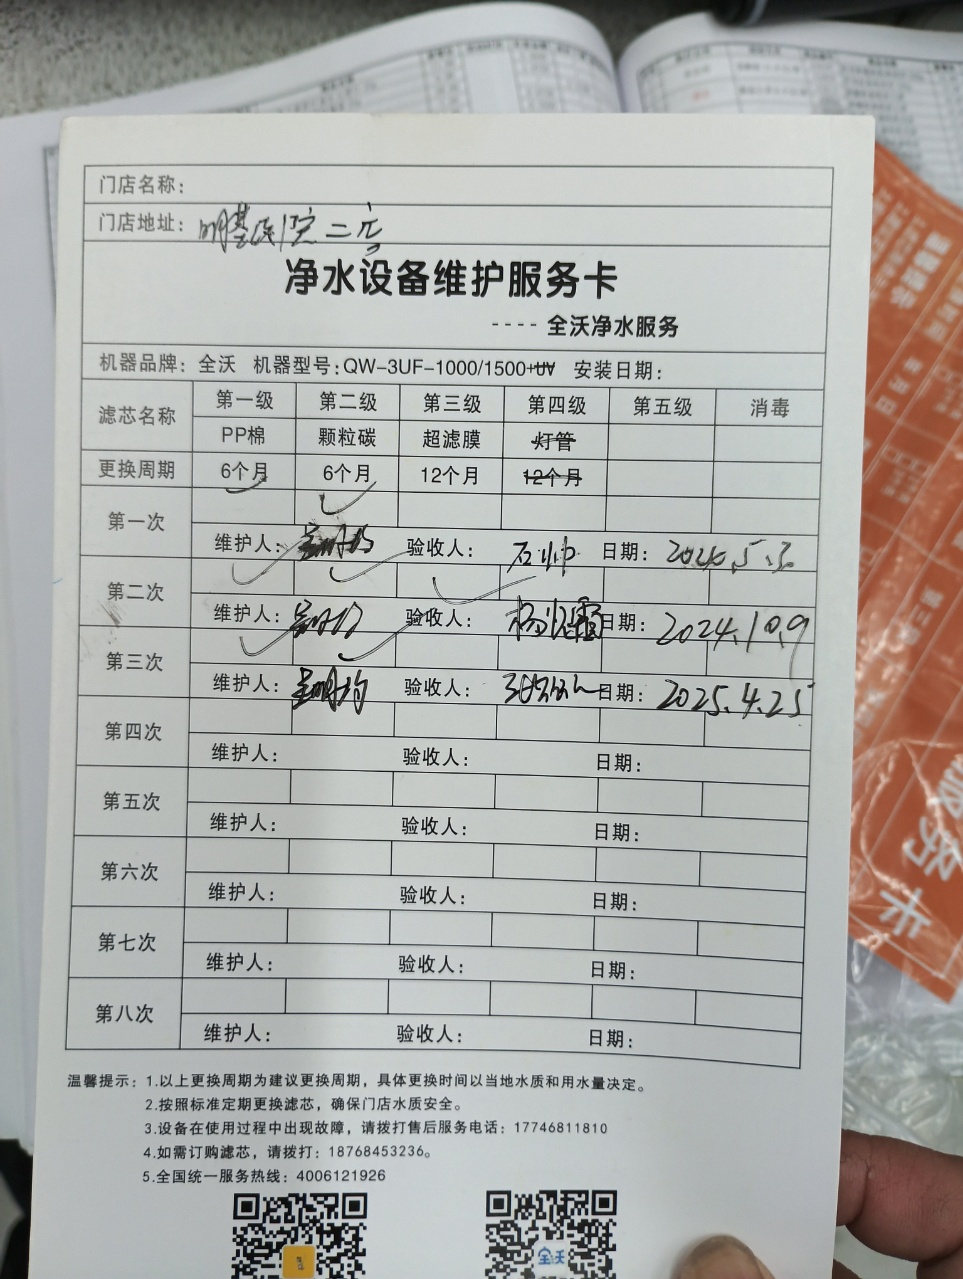 门店名称：
门店地址：明基医院二店
净水设备维护服务卡
---- 全沃净水服务
机器品牌：全沃 机器型号：QW-3UF-1000/1500+UV 安装日期：
滤芯名称 第一级 第二级 第三级 第四级 第五级 消毒
PP棉 颗粒碳 超滤膜 灯管
更换周期 6个月 6个月 12个月 12个月
第一次
维护人： 验收人：石帅 日期：2024.5.3
第二次
维护人： 验收人： 日期：2024.10.9
第三次
维护人： 验收人： 日期：2025.4.25
第四次
维护人： 验收人： 日期：
第五次
维护人： 验收人： 日期：
第六次
维护人： 验收人： 日期：
第七次
维护人： 验收人： 日期：
第八次
维护人： 验收人： 日期：
温馨提示：1.以上更换周期为建议更换周期，具体更换时间以当地水质和用水量决定。
2.按照标准定期更换滤芯，确保门店水质安全。
3.设备在使用过程中出现故障，请拨打售后服务电话：17746811810
4.如需订购滤芯，请拨打：18768453236。
5.全国统一服务热线：4006121926
全沃
务
卡